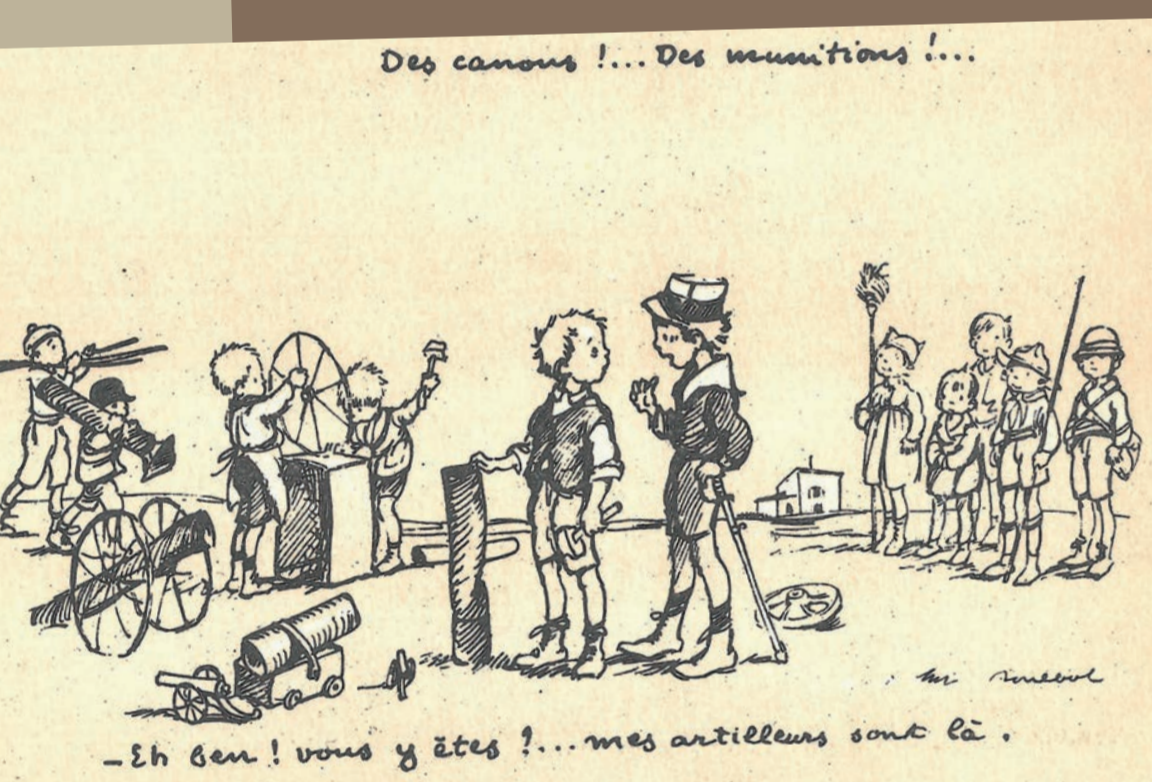 Des canons !... Des munitions !...
_Eh ben ! vous y êtes ?... mes artilleurs sont là .